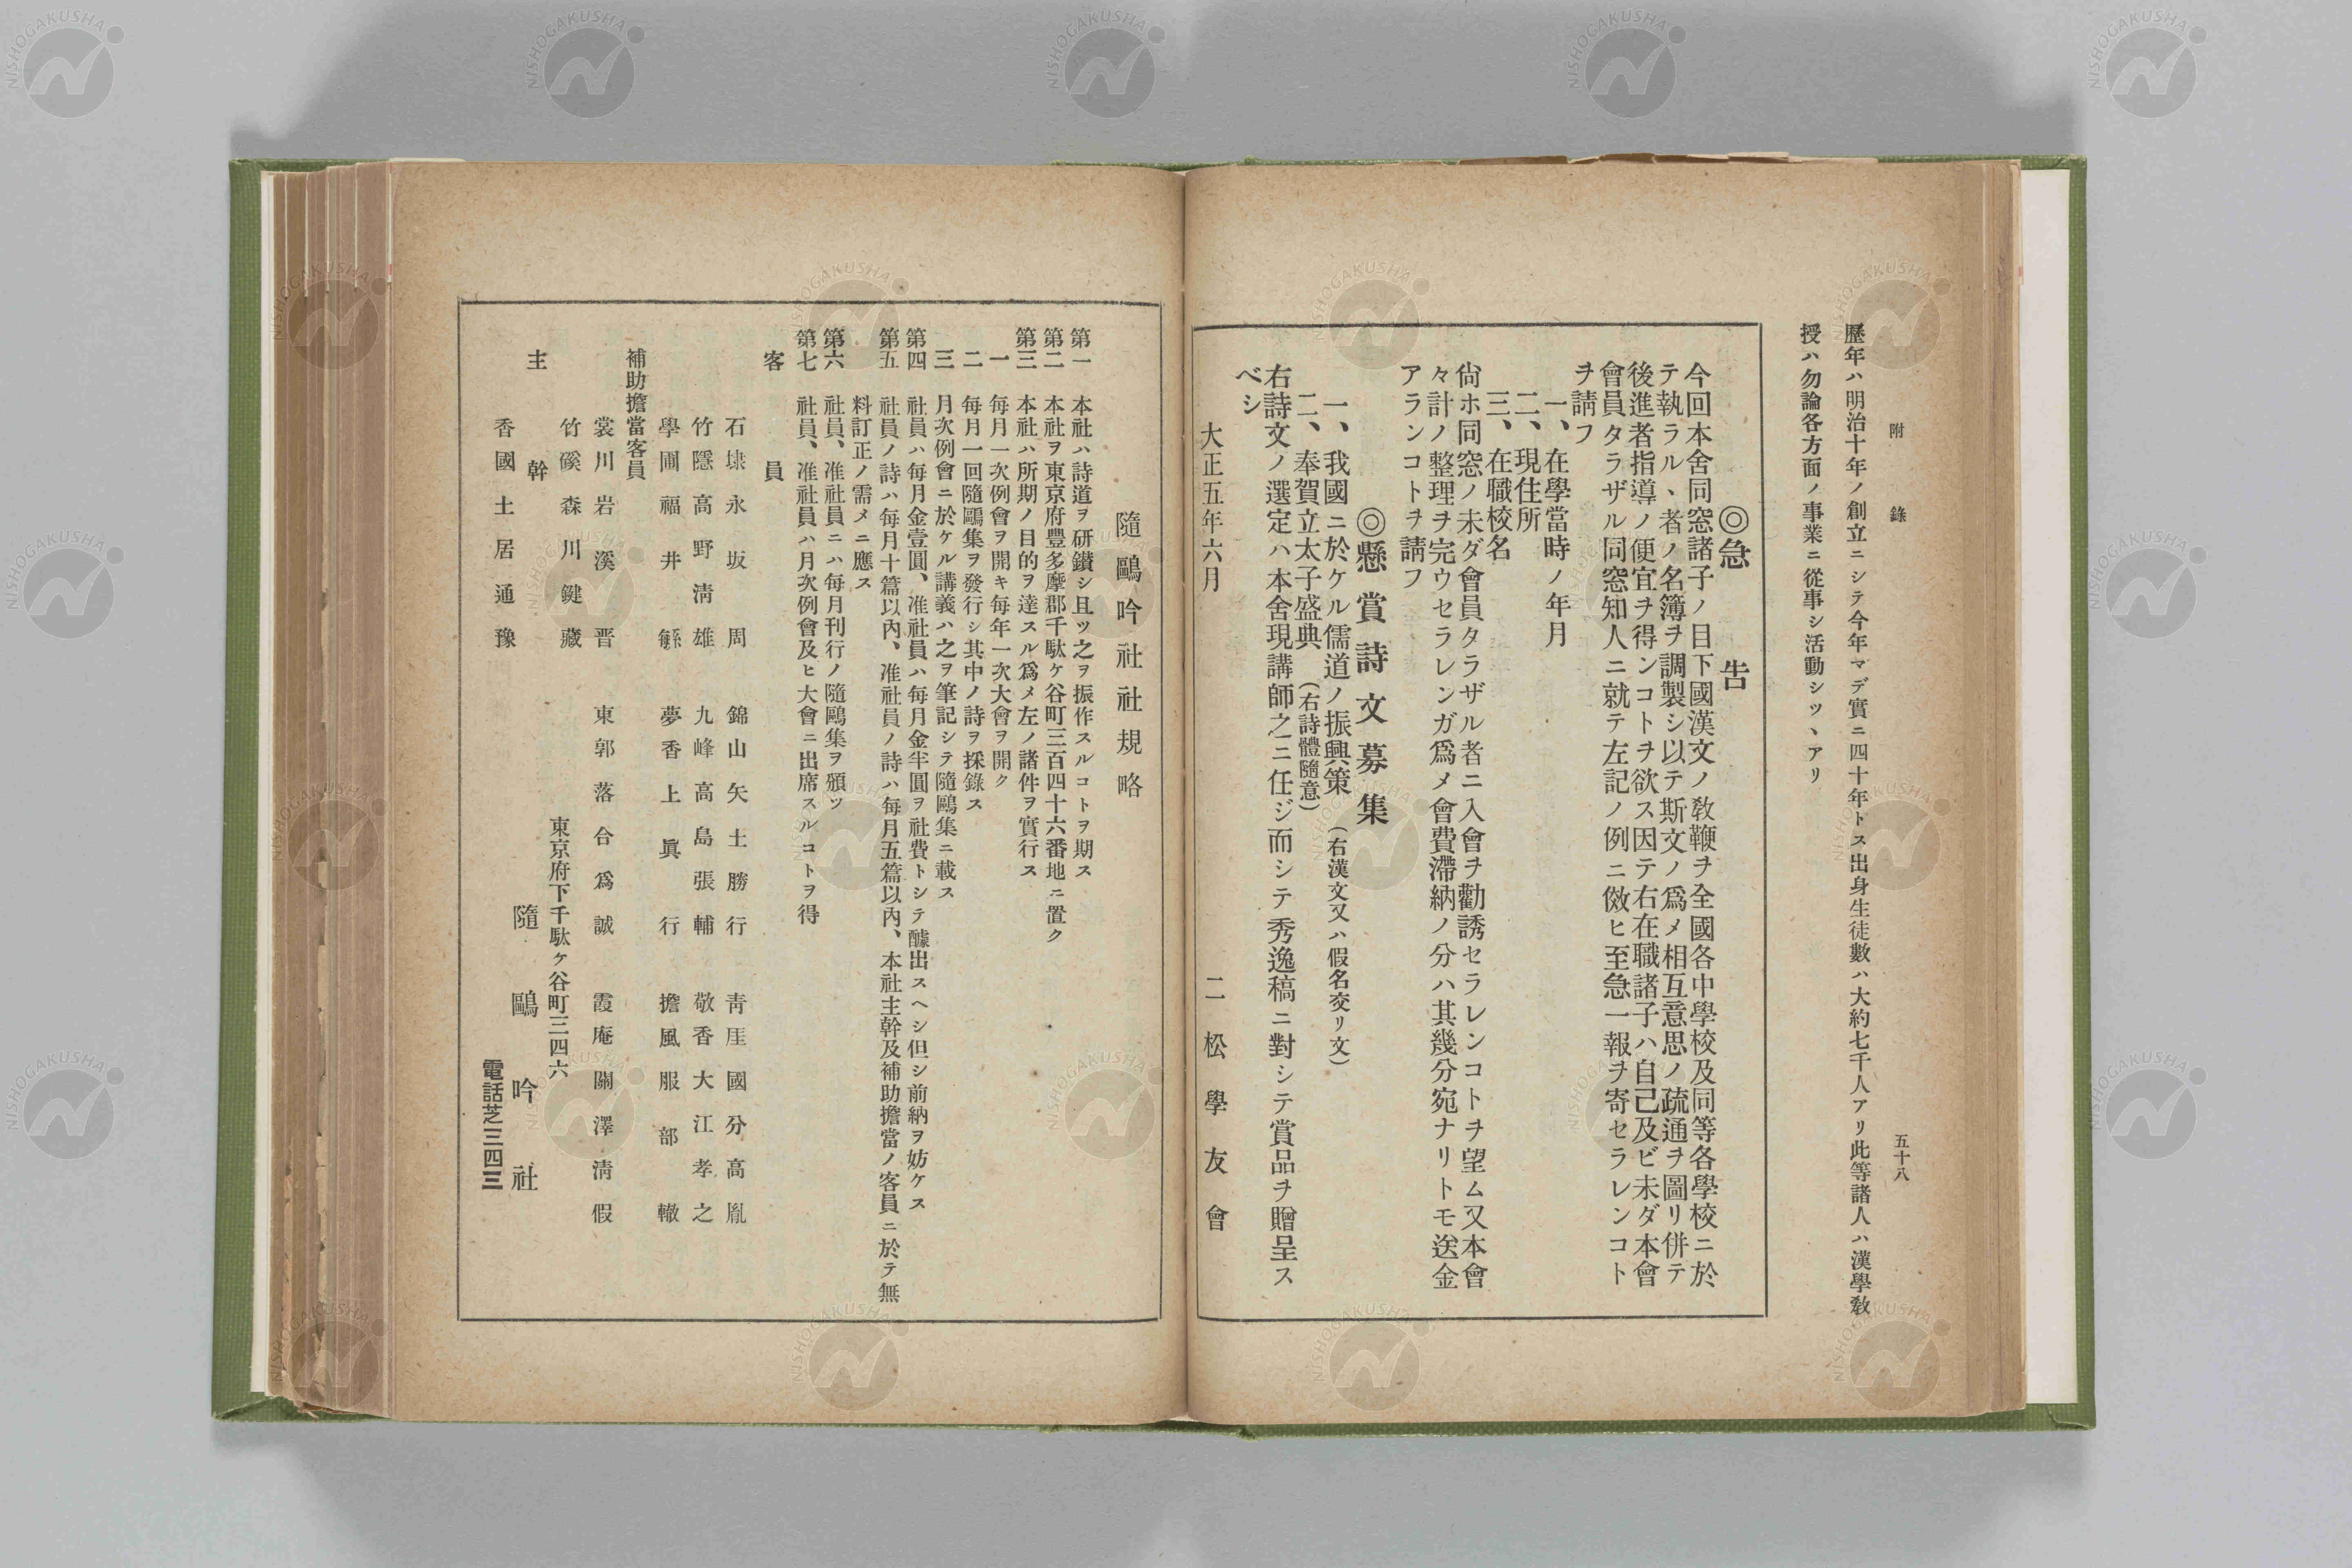 附錄
五十八
歷年ハ明治十年ノ創立ニシテ今年マデ實ニ四十年トス出身生徒數ハ大約七千人アリ此等諸人ハ漢學敎
授ハ勿論各方面ノ事業ニ從事シ活動シツヽアリ
◎急告
今回本舍同窓諸子ノ目下國漢文ノ敎鞭ヲ全國各中學校及同等各學校ニ於
テ執ラルヽ者ノ名簿ヲ調製シ以テ斯文ノ爲メ相互意思ノ疏通ヲ圖リ併テ
後進者指導ノ便宜ヲ得ンコトヲ欲ス因テ右在職諸子ハ自己及ビ未ダ本會
會員タラザル同窓知人ニ就テ左記ノ例ニ傚ヒ至急一報ヲ寄セラレンコト
ヲ請フ
一、在學當時ノ年月
二、現住所
三、在職校名
尙ホ同窓ノ未ダ會員タラザル者ニ入會ヲ勸誘セラレンコトヲ望ム又本會
々計ノ整理ヲ完ウセラレンガ爲メ會費滯納ノ分ハ其幾分宛ナリトモ送金
アランコトヲ請フ
◎懸賞詩文募集
一、我國ニ於ケル儒道ノ振興策(右漢文又ハ假名交リ文)
二、奉賀立太子盛典(右詩體隨意)
右詩文ノ選定ハ本舍現講師之ニ任ジ而シテ秀逸稿ニ對シテ賞品ヲ贈呈ス
ベシ
大正五年六月
二松學友會
隨鷗吟社社規略
第一 本社ハ詩道ヲ研鑽シ且ツ之ヲ振作スルコトヲ期ス
第二 本社ヲ東京府豐多摩郡千駄ケ谷町三百四十六番地ニ置ク
第三 本社ハ所期ノ目的ヲ達スル爲メ左ノ諸件ヲ實行ス
一 每月一次例會ヲ開キ每年一次大會ヲ開ク
二 每月一回隨鷗集ヲ發行シ其中ノ詩ヲ採錄ス
三 月次例會ニ於ケル講義ハ之ヲ筆記シテ隨鷗集ニ載ス
第四 社員ハ每月金壹圓、准社員ハ每月金半圓ヲ社費トシテ醵出スヘシ但シ前納ヲ妨ケス
第五 社員ノ詩ハ每月十篇以內、准社員ノ詩ハ每月五篇以內、本社主幹及補助擔當ノ客員ニ於テ無
料訂正ノ需メニ應ス
第六 社員、准社員ニハ每月刊行ノ隨鷗集ヲ頒ツ
第七 社員、准社員ハ月次例會及ヒ大會ニ出席スルコトヲ得
客員
石埭永坂周 錦山矢土勝行 靑厓國分高胤
竹隱高野淸雄 九峰高島張輔 敬香大江孝之
學圃福井繇 夢香上眞行 擔風服部轍
補助擔當客員
裳川岩溪晋 東郭落合爲誠 霞庵關澤淸假
竹磎森川鍵藏
東京府下千駄ケ谷町三四六
主幹
隨鷗吟社
香國土居通豫
電話芝三四三